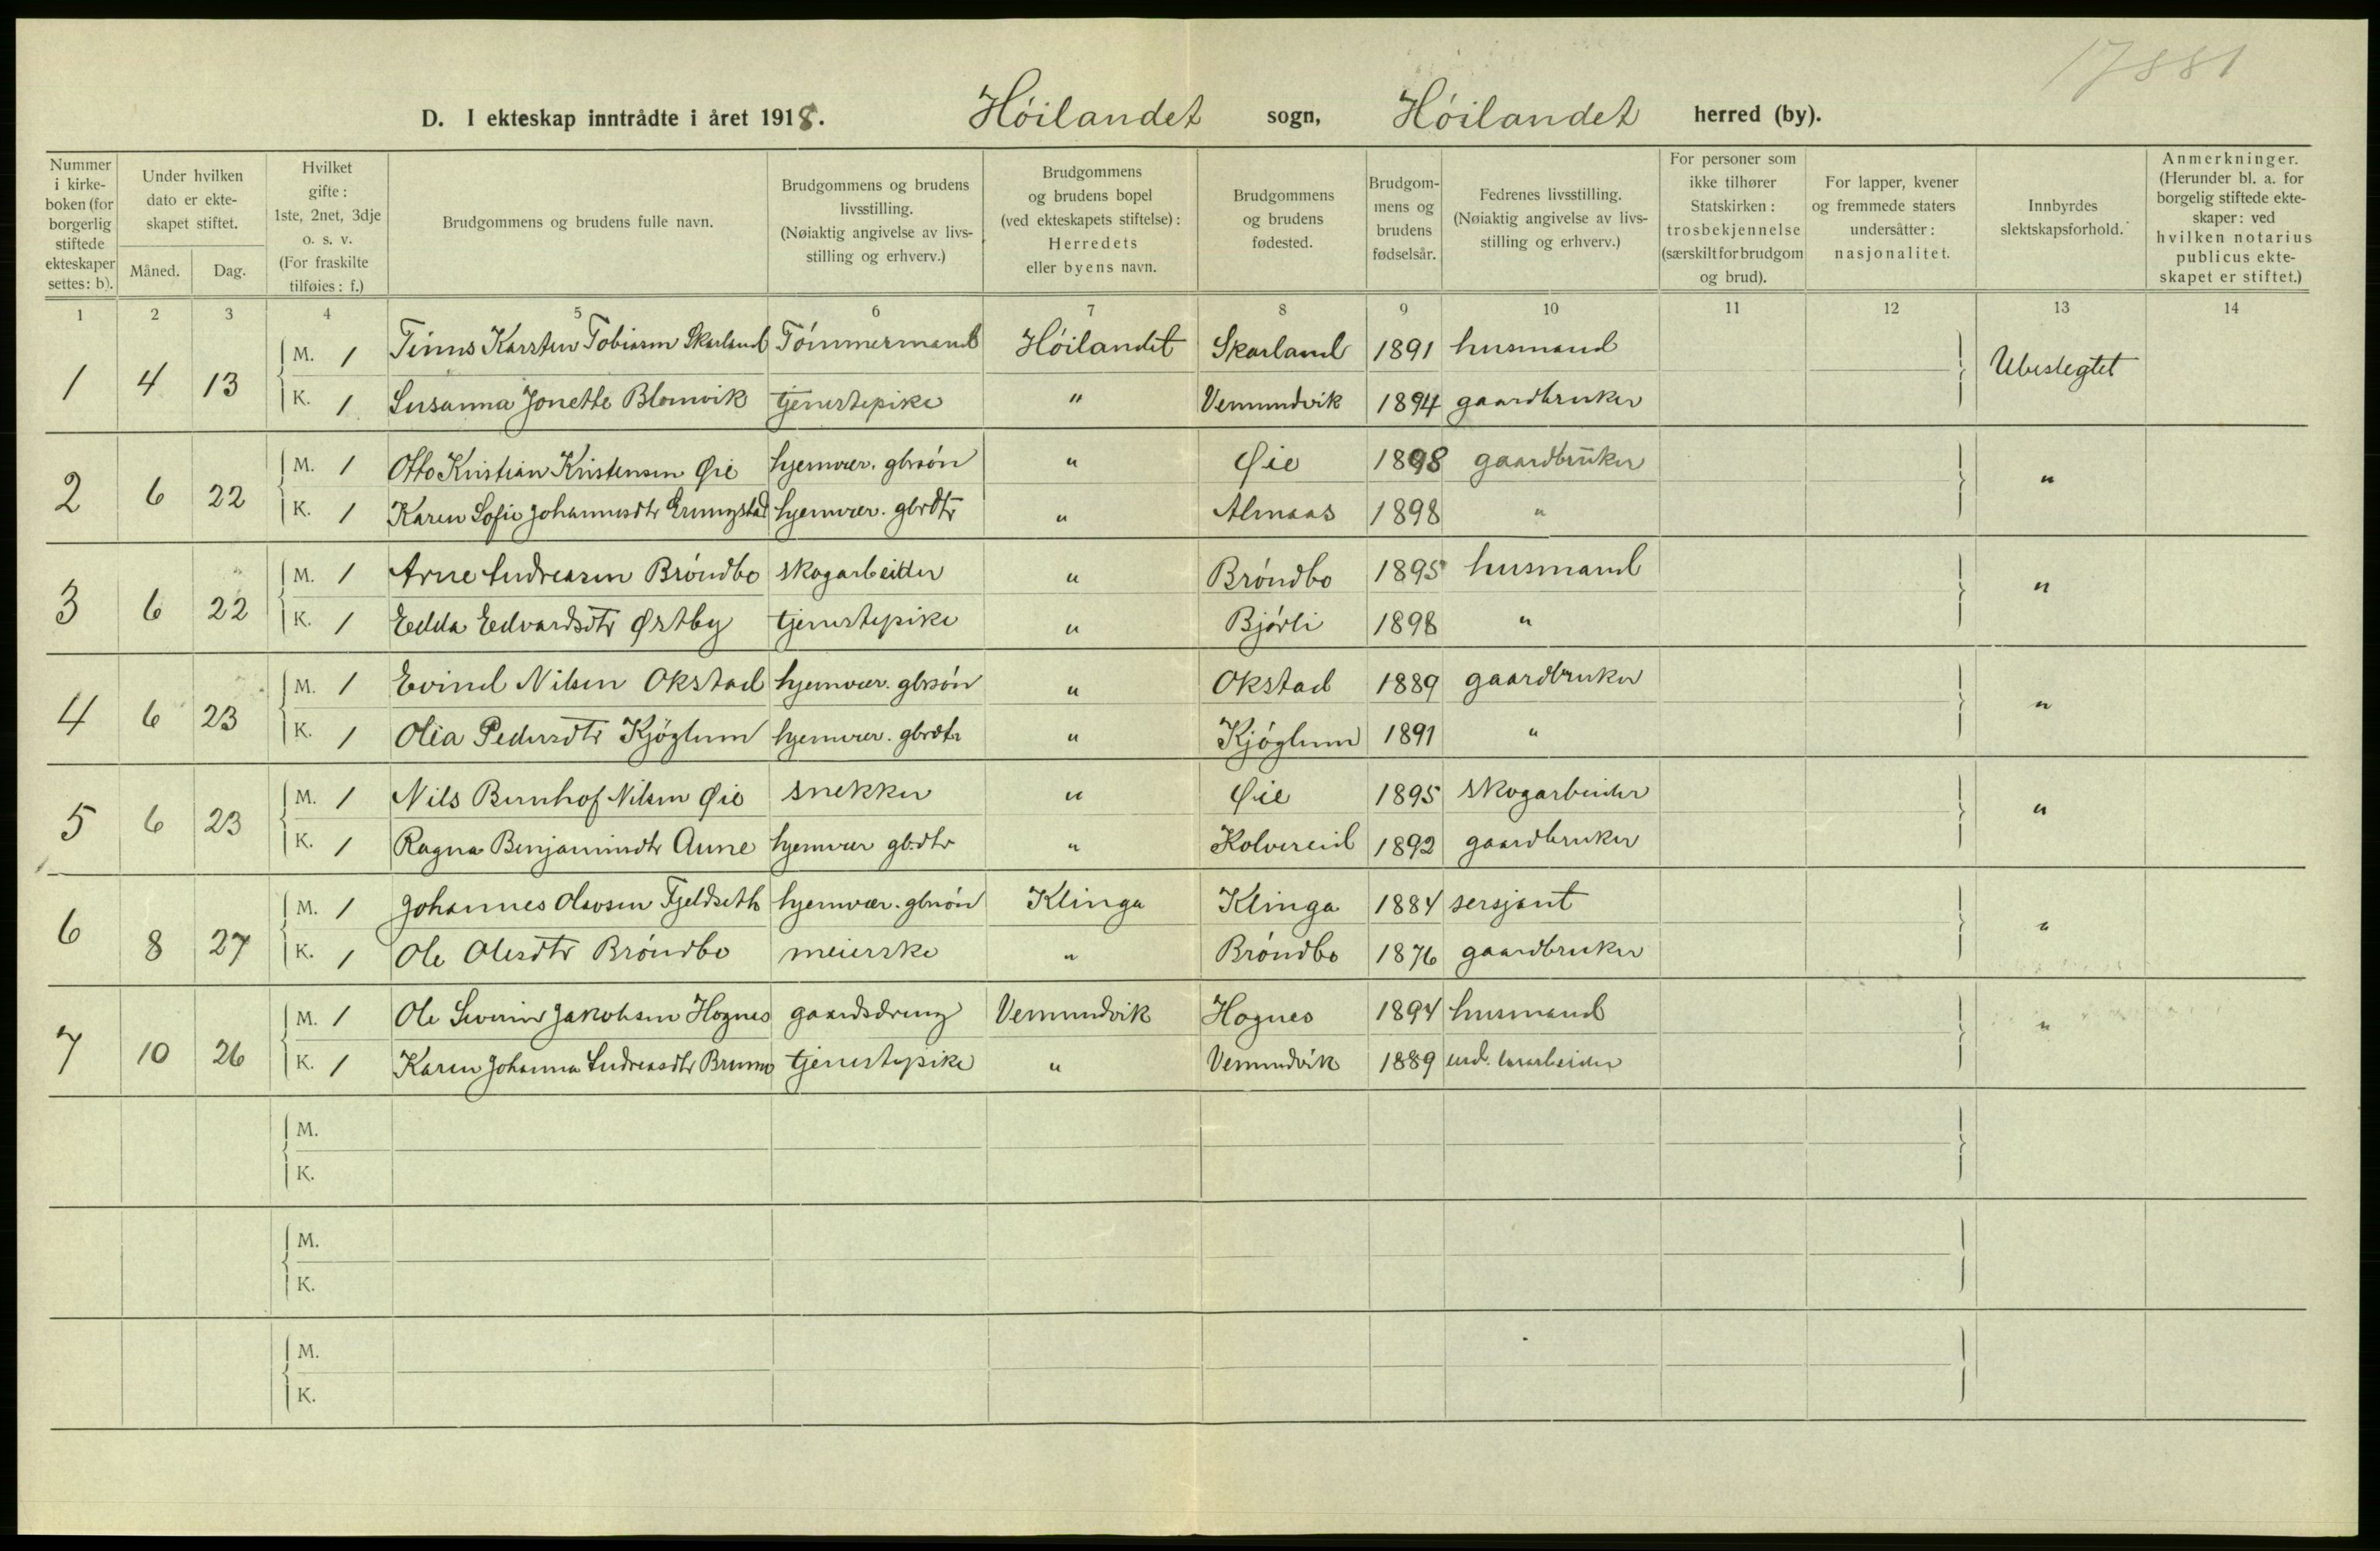 17881
D. I ekteskap inntrådte i året 1918. Höilandet sogn, Höilandet herred (by).
Nummer i kirkeboken (for borgerlig stiftede ekteskaper settes: b).
Under hvilken dato er ekteskapet stiftet.
Måned. Dag.
Hvilket gifte: 1ste, 2net, 3dje o. s. v. (For fraskilte tilføies: f.)
Brudgommens og brudens fulle navn.
Brudgommens og brudens livsstilling. (Nøiaktig angivelse av livsstilling og erhverv.)
Brudgommens og brudens bopel (ved ekteskapets stiftelse): Herredets eller byens navn.
Brudgommens og brudens fødested.
Brudgommens og brudens fødselsår.
Fedrenes livsstilling. (Nøiaktig angivelse av livsstilling og erhverv.)
For personer som ikke tilhører Statskirken: trosbekjennelse (særskilt for brudgom og brud).
For lapper, kvener og fremmede staters undersåtter: nasjonalitet.
Innbyrdes slektskapsforhold.
Anmerkninger. (Herunder bl. a. for borgelig stiftede ekteskaper: ved hvilken notarius publicus ekteskapet er stiftet.)
1 2 3 4 5 6 7 8 9 10 11 12 13 14
1 4 13 M. 1 Karsten Tobiasen Skarland Tömmermand Höilandet Skarland 1891 husmand Ubeslegtet
K. 1 Susanna Jonette Blomvik tjenestepike " Vemundvik 1894 gaardbruker
2 6 22 M. 1 Otto Kristian Kristensen Øie hjemvær. gbrsön " Øie 1898 gaardbruker "
K. 1 Karen Sofie Johannesdtr Grungstad hjemvær. gbrdtr " Almaas 1898 "
3 6 22 M. 1 Arne Andreasen Bröndbo skogarbeider " Bröndbo 1895 husmand "
K. 1 Edda Edvardsdtr Østby tjenestepike " Bjørli 1898 "
4 6 23 M. 1 Evind Nilsen Okstad hjemvær. gbrsön " Okstad 1889 gaardbruker "
K. 1 Olia Pedersdtr Kjöglum hjemvær. gbrdtr " Kjöglum 1891 "
5 6 23 M. 1 Nils Bernhof Nilsen Øie snekker " Øie 1895 skogarbeider "
K. 1 Ragna Benjaminsdtr Aune hjemvær gb.dtr " Kolvereid 1892 gaardbruker
6 8 27 M. 1 Johannes Olavsen Fjeldseth hjemvær. gbrsön Klinga Klinga 1884 sersjant "
K. 1 Ole Olesdtr Bröndbo meierske " Bröndbo 1876 gaardbruker
7 10 26 M. 1 Ole Severin Jakobsen Hognes gaardsdreng Vemundvik Hognes 1894 husmand "
K. 1 Karen Johanna Andreasdtr Brumo tjenestepike " Vemundvik 1889
M.
K.
M.
K.
M.
K.